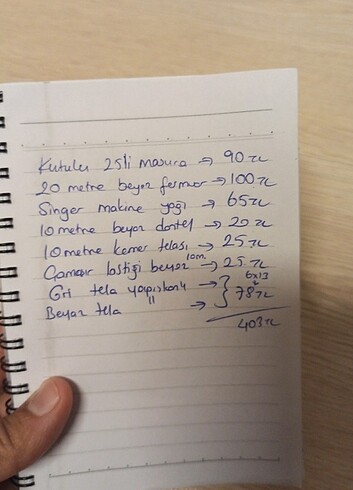 Kutulu 25li masura → 90 TL
20 metre beyaz fermuar → 100 TL
Singer makine yağı → 65 TL
10 metre beyaz dantel → 20 TL
10 metre kemer telası → 25 TL
Çamaşır lastiği beyaz 10m → 25 TL
Gri tela yapışkanlı → } 6x13
Beyaz tela " → } 78 TL
403 TL